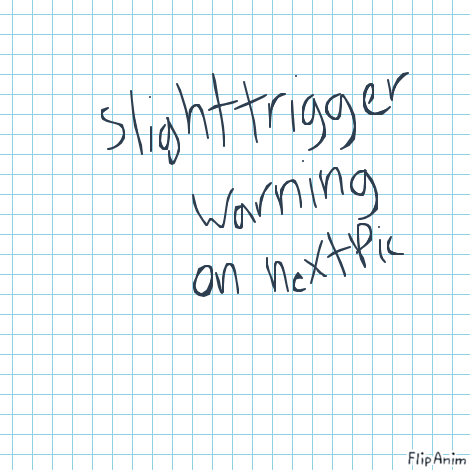 slight trigger
warning
on next Pic
FlipAnim